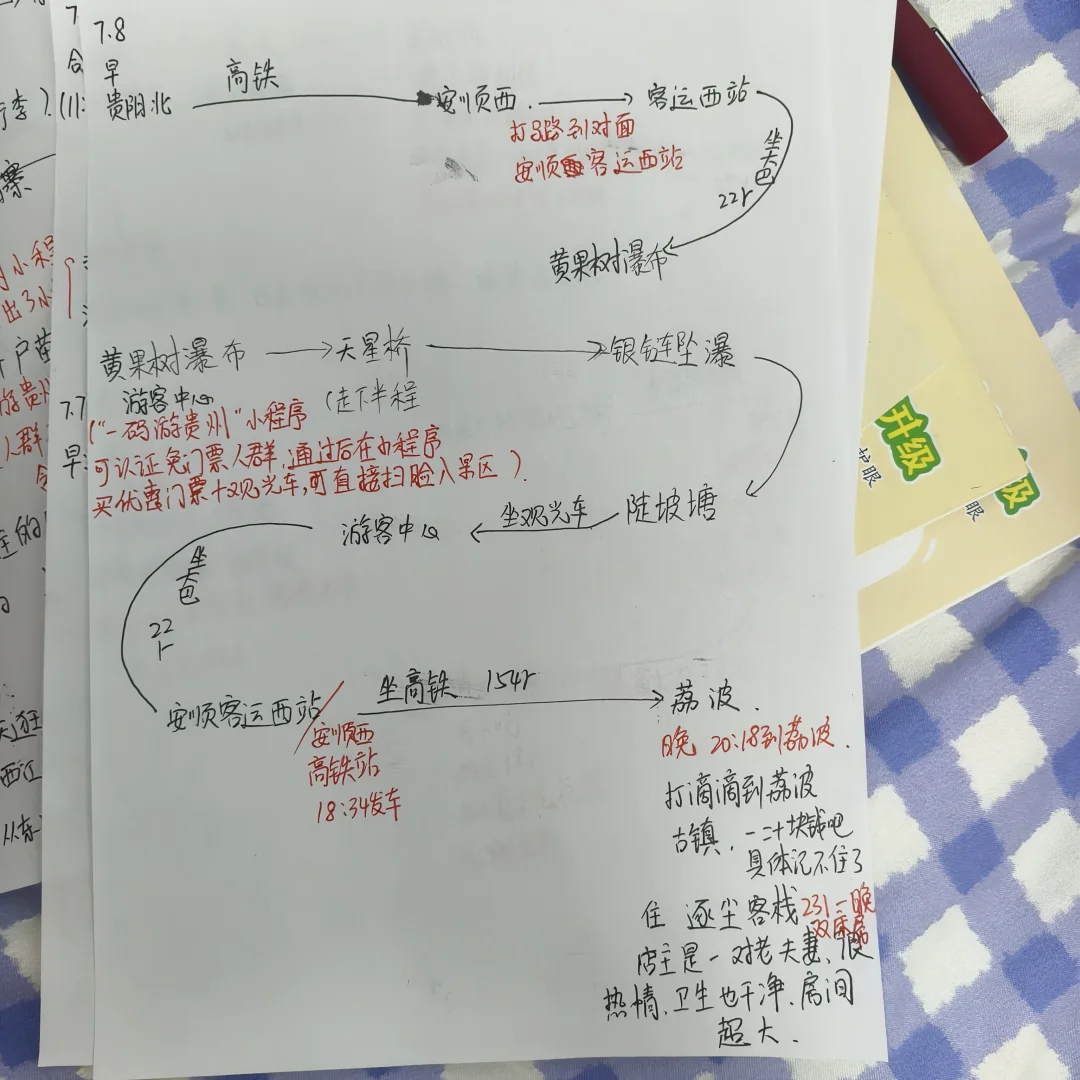 7.8
早
贵阳北
高铁
安顺西.
客运西站
打马路到对面
安顺客运西站
坐大巴
22r
黄果树瀑布
黄果树瀑布
天星桥
银链坠瀑
游客中心
(走下半程
("一码游贵州"小程序
可认证免门票人群,通过后在小程序
买优惠门票+观光车,可直接扫脸入景区).
陡坡塘
坐观光车
游客中心
坐大巴
22r
安顺客运西站
安顺西
高铁站
18:34发车
坐高铁 154r
荔波.
晚 20:18到荔波.
打滴滴到荔波
古镇,一二十块钱吧
具体记不住了
住 逐尘客栈
231一晚
双床房
店主是一对老夫妻、很
热情、卫生也干净、房间
超大.
7
7.7
早:
(11:
寨
西江
升级
护眼
级
眼